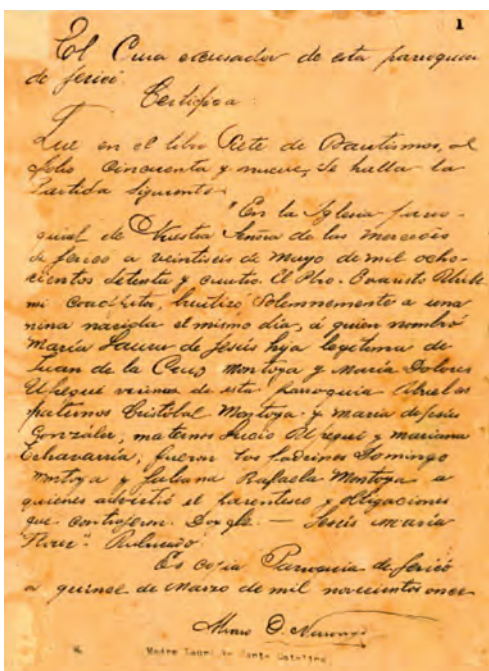 1
El Cura excusador de esta parroquia
de Jericó.
Certifica:
Que en el libro Siete de Bautismos, al
folio Cincuenta y nueve, se halla la
Partida siguiente.
"En la Iglesia parro-
quial de Nuestra Señora de las Mercedes
de Jericó a veintiseis de Mayo de mil ocho-
cientos setenta y cuatro. El Pbro. Evaristo Uribe
mi Coadjutor, bautizó Solemnemente a una
nina nacida el mismo día, á quien nombró
María Laura de Jesús hija legítima de
Juan de la Cruz Montoya y María Dolores
Upegui vecinos de esta parroquia Abuelos
paternos Cristóbal Montoya y maria de Jesús
González, maternos Lucio Upegui y mariana
Echavarría; fueron los padrinos Domingo
Montoya y Juliana Rafaela Montoya a
quienes advertió el parentesco y obligaciones
que contrajeron. Doy fe. — Jesús María
Rubricado
Es copia Parroquia de Jericó
a quince de Marzo de mil novecientos once
Madre Laura de Santa Catalina